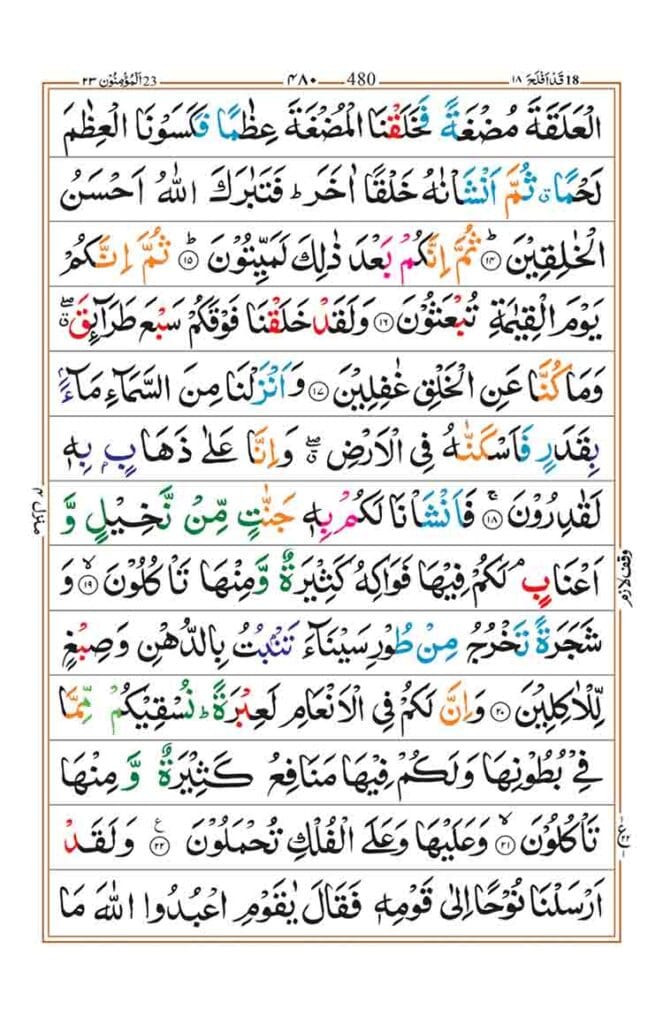 18 قَدْ اَفْلَحَ ١٨ 480 ٤٨٠ 23 اَلْمُؤْمِنُوْن ٢٣
الْعَلَقَةَ مُضْغَةً فَخَلَقْنَا الْمُضْغَةَ عِظٰمًا فَكَسَوْنَا الْعِظٰمَ
لَحْمًا ۗ ثُمَّ اَنْشَاْنٰهُ خَلْقًا اٰخَرَ ؕ فَتَبٰرَكَ اللّٰهُ اَحْسَنُ
الْخٰلِقِيْنَ ؕ ۱۴ ثُمَّ اِنَّكُمْ بَعْدَ ذٰلِكَ لَمَيِّتُوْنَ ؕ ۱۵ ثُمَّ اِنَّكُمْ
يَوْمَ الْقِيٰمَةِ تُبْعَثُوْنَ ۱۶ وَلَقَدْ خَلَقْنَا فَوْقَكُمْ سَبْعَ طَرَآئِقَ ۖ ق
وَمَا كُنَّا عَنِ الْخَلْقِ غٰفِلِيْنَ ۱۷ وَاَنْزَلْنَا مِنَ السَّمَآءِ مَآءًۢ
بِقَدَرٍ فَاَسْكَنّٰهُ فِى الْاَرْضِ ۖ ق وَاِنَّا عَلٰى ذَهَابٍۭ بِهٖ
لَقٰدِرُوْنَ ۚ ۱۸ فَاَنْشَاْنَا لَكُمْ بِهٖ جَنّٰتٍ مِّنْ نَّخِيْلٍ وَّ
اَعْنَابٍ ۘ لَكُمْ فِيْهَا فَوَاكِهُ كَثِيْرَةٌ وَّمِنْهَا تَاْكُلُوْنَ ۙ ۱۹ وَ
شَجَرَةً تَخْرُجُ مِنْ طُوْرِ سَيْنَآءَ تَنْۢبُتُ بِالدُّهْنِ وَصِبْغٍ
لِّلْاٰكِلِيْنَ ۲۰ وَاِنَّ لَكُمْ فِى الْاَنْعَامِ لَعِبْرَةً ؕ نُسْقِيْكُمْ مِّمَّا
فِيْ بُطُوْنِهَا وَلَكُمْ فِيْهَا مَنَافِعُ كَثِيْرَةٌ وَّمِنْهَا
تَاْكُلُوْنَ ۙ ۲۱ وَعَلَيْهَا وَعَلَى الْفُلْكِ تُحْمَلُوْنَ ع ۲۲ وَلَقَدْ
اَرْسَلْنَا نُوْحًا اِلٰى قَوْمِهٖ فَقَالَ يٰقَوْمِ اعْبُدُوا اللّٰهَ مَا
منزل ۴
وقف لازم